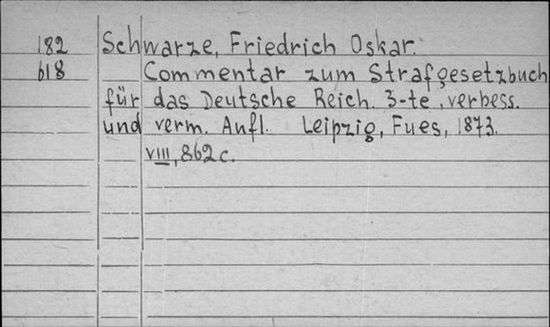 182 Schwarze, Friedrich Oskar.
618 Commentar zum Strafgesetzbuch
für das Deutsche Reich. 3-te, verbess.
und verm. Aufl. Leipzig, Fues, 1873.
VIII, 862 c.